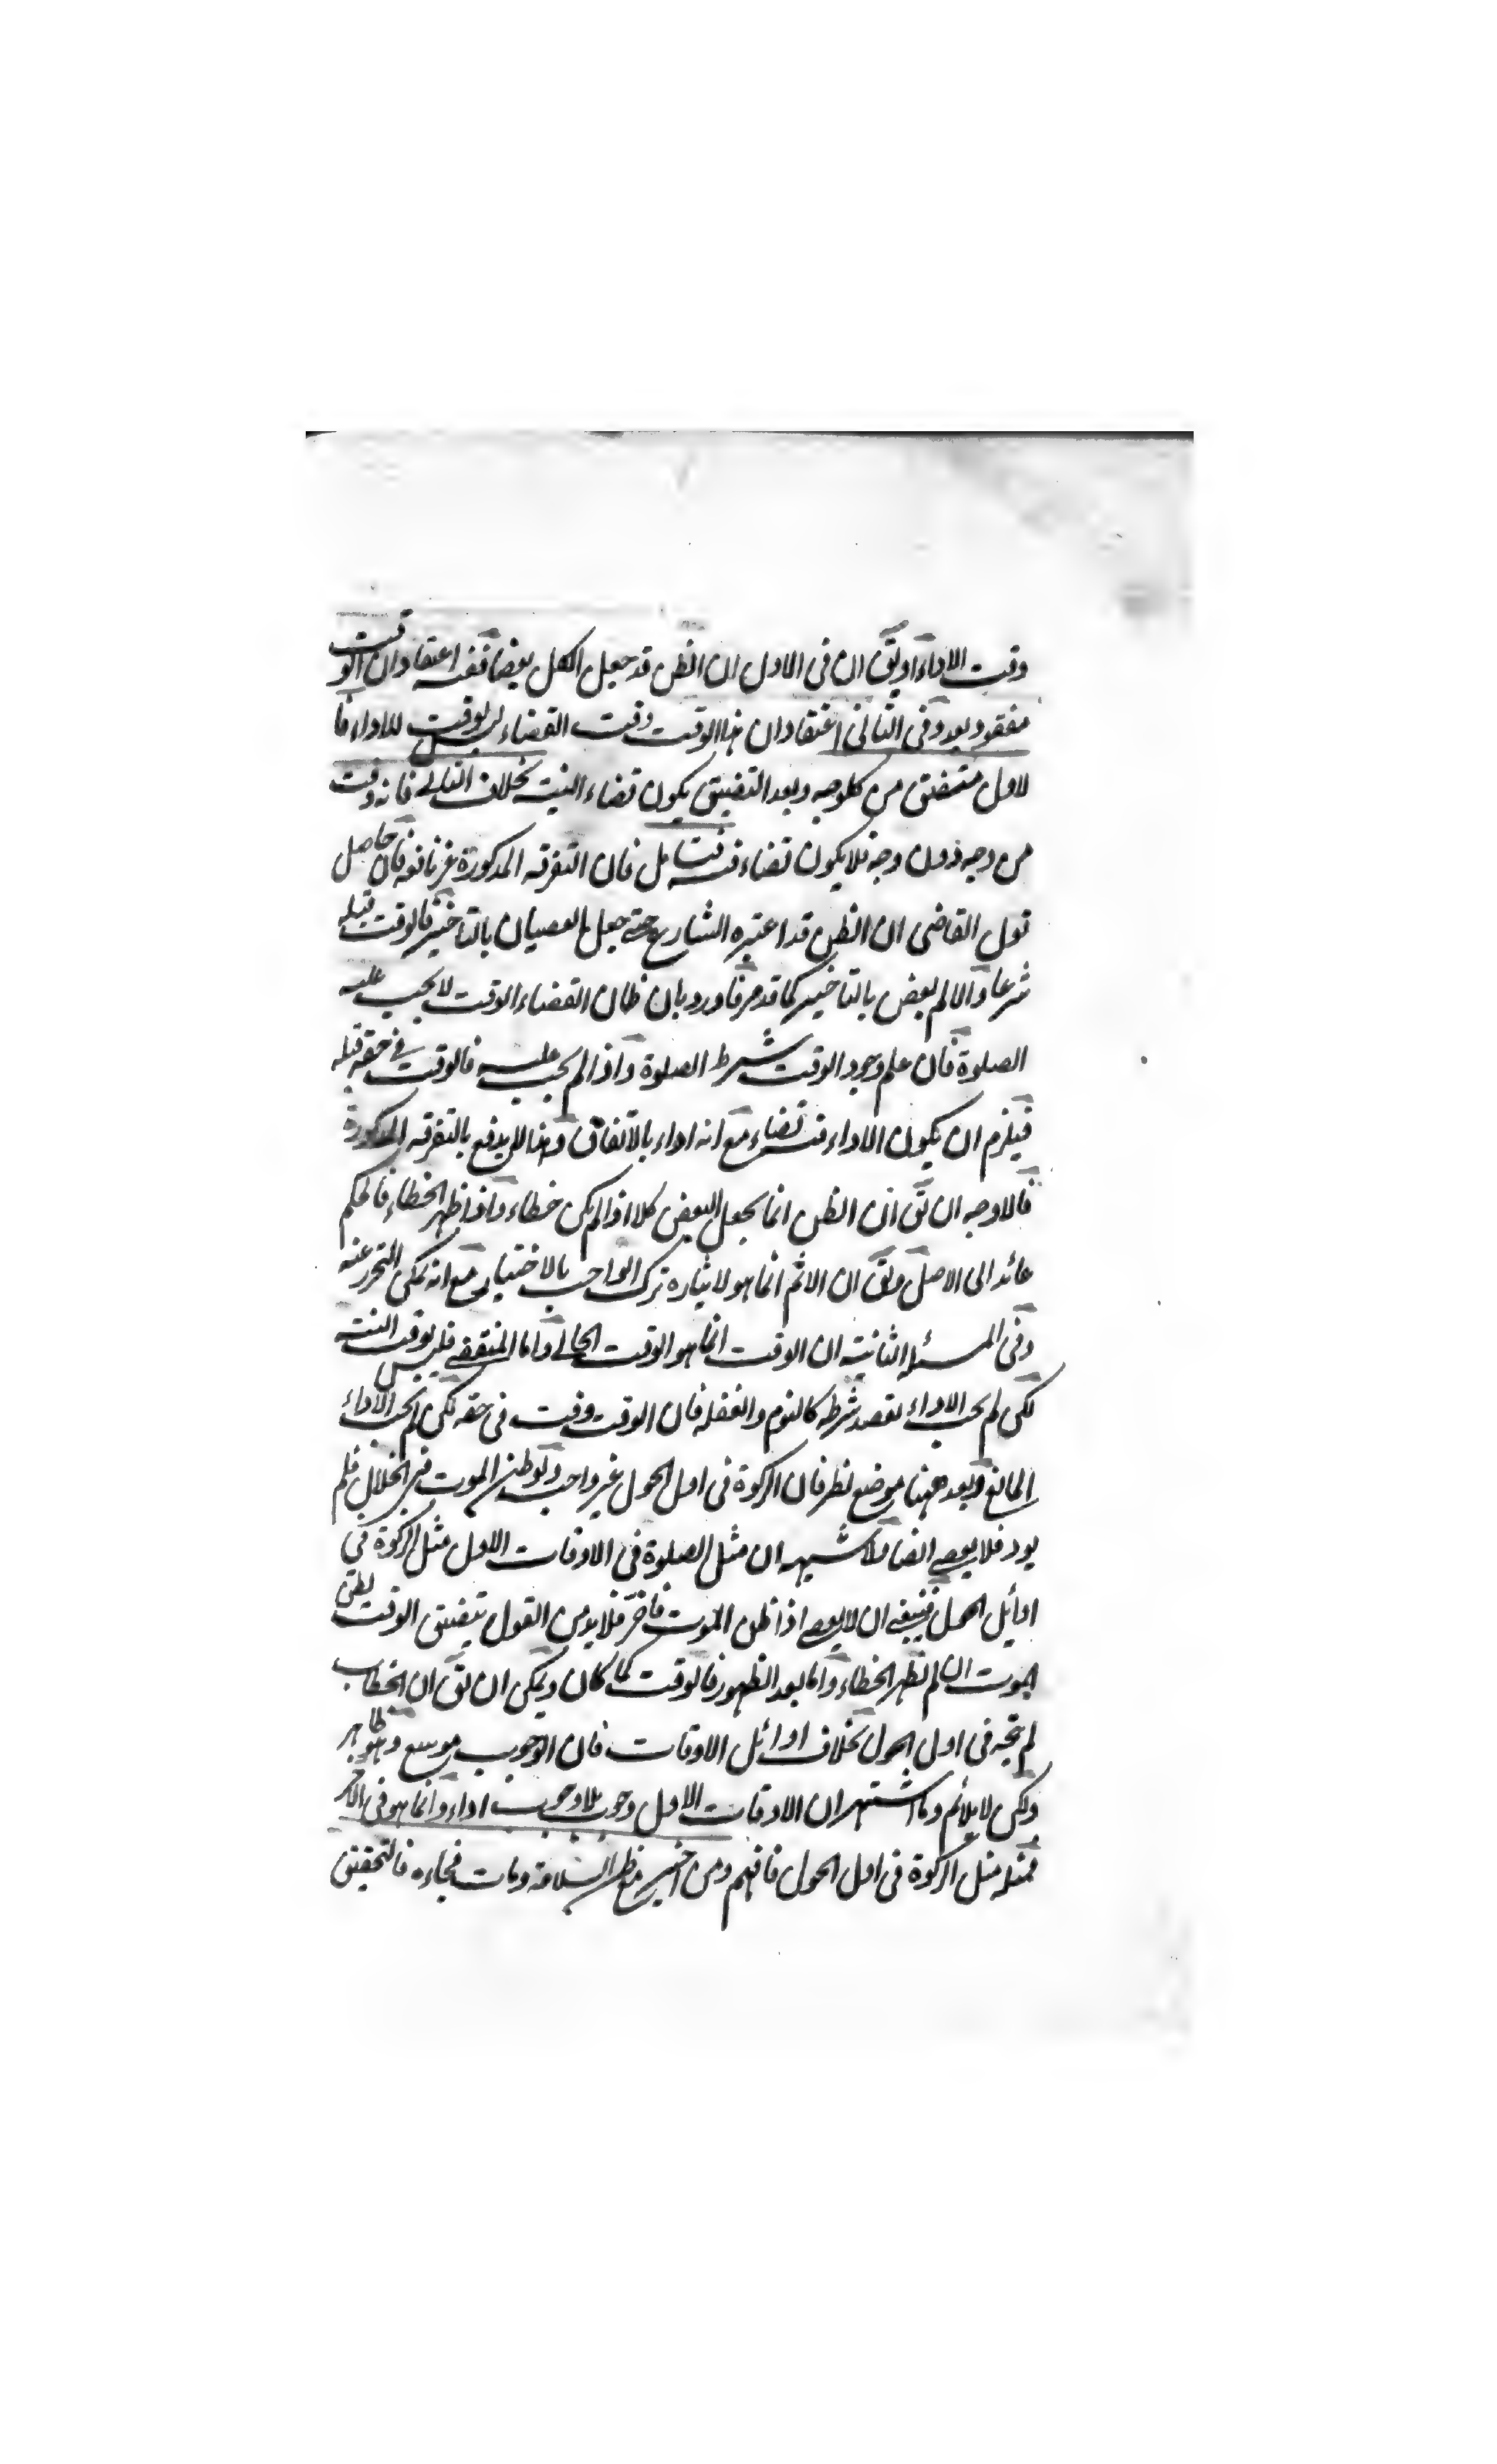 وقت الاداء او يق ان فى الاول ان الظن قد جعل الكل بعضا ففيه اعتقاد ان الوقت
مفقود بعد وفى الثانى اعتقاد ان هذا الوقت وقت القضاء ليس بوقت للاداء فا
لاول متضيق من كل وجه وبعد التضيق يكون قضاء البتة بخلاف الثانى فانه وقت
من وجه دون وجه فلا يكون قضاء فيه فتامل فان التفرقه المذكورة غير نافعة فان حاصل
قول القاضى ان الظن قد اعتبره الشارع حتى جعل العصيان بالتاخير فالوقت قبله
شرعا والا لم يعص بالتاخير كما قد مر فاورد بان ظان القضاء الوقت لا يجب عليه
الصلوة فان علم وجود الوقت شرط الصلوة واذا لم يجب عليه فالوقت في حقه قبله
فيلزم ان يكون الاداء فيه قضاء مع انه اداء بالاتفاق وهذا لا يدفع بالتفرقه المذكورة
فالاوجه ان يق ان الظن انما يجعل البعض كلا اذا لم يكن خطاء واذا ظهر الخطاء فالحكم
عائد الى الاصل ويق ان الاثم انما هو لايثاره ترك الواجب بالاختيار مع انه يمكن التحرز عنه
وفى المسئلة الثانية ان الوقت انما هو الوقت الحالى واما المنقضى فليس بوقت البتة
لكن لم يجب الاداء لقصد شرطه كالنوم والغفلة فان الوقت وقت فى حقه لكن لم يجب الاداء
المانع وبعد ههنا موضع نظر فان الزكوة فى اول الحول غير واجب ولو ظن الموت فى الخلال فلم
يود فلا يعصى ايضا ولا شبهه ان مثل الصلوة فى الاوقات الاول مثل الزكوة في
اوائل الحول فينبغى ان لا يعصى اذا ظن الموت فاخر فلا بد من القول بتضيق الوقت بظن
الموت ان لم يظهر الخطاء واما بعد الظهور فالوقت كما كان ويمكن ان يق ان الخطاب
لم يتجه فى اول الحول بخلاف اوائل الاوقات فان الوجوب موسع وهو ظاهر
ولكن لا يلائم وما اشتهر ان الاوقات الاول وجوب بلا وجوب اداء وانما هو فى الاخر
فمثله مثل الزكوة فى اول الحول فافهم ومن اخر مع ظن السلامة ومات فجاءه فالتحقيق